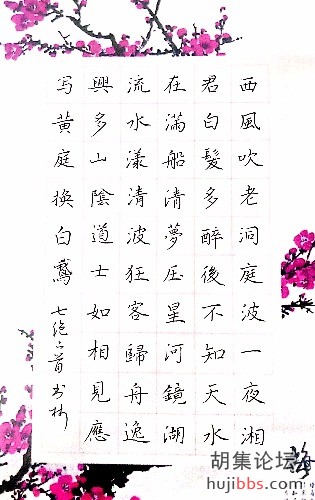 西風吹老洞庭波一夜湘
君白髮多醉後不知天水
在滿船清夢压星河鏡湖
流水漾清波狂客歸舟逸
興多山陰道士如相見應
写黄庭换白鵞 七绝二首书
胡集论坛
hujibbs.com